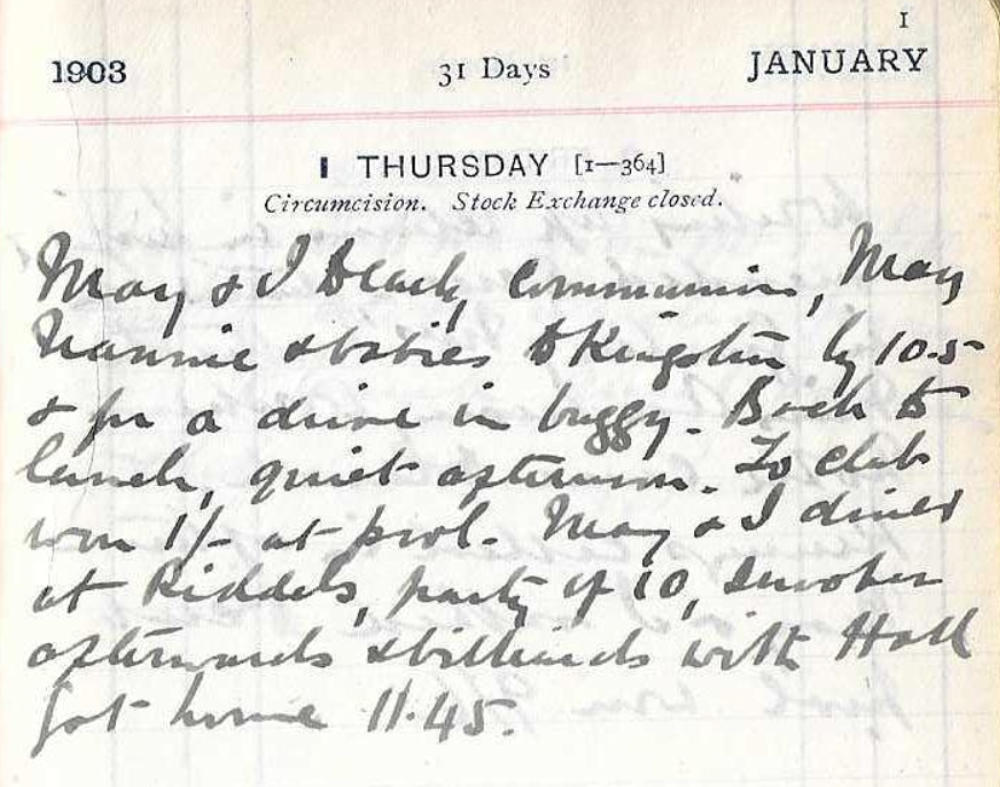 1
1903 31 Days JANUARY
1 THURSDAY [1—364]
Circumcision. Stock Exchange closed.
May & I to early Communion, May
Nannie & babies to Kingston by 10.5
& for a drive in buggy. Back to
lunch, quiet afternoon. To club
won 1/- at pool. May & I dined
at Riddels, party of 10,
afterwards & billiards with Hall
Got home 11.45.